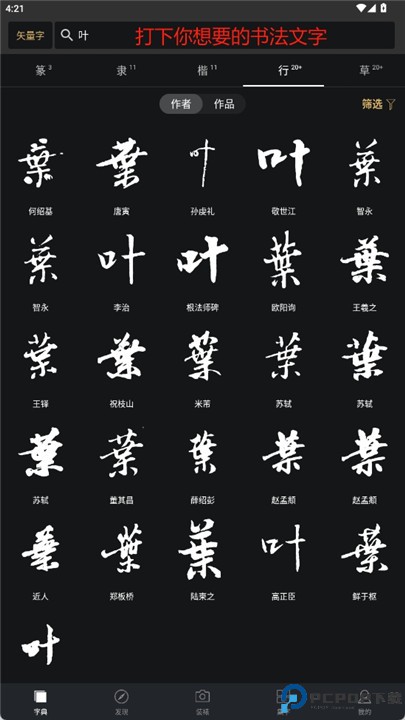 4:21
矢量字 叶 打下你想要的书法文字
篆 3 隶 11 楷 11 行 20+ 草 20+
作者 作品 筛选
葉 葉 叶 叶 葉
何绍基 唐寅 孙虔礼 敬世江 智永
葉 叶 叶 葉 葉
智永 李治 根法师碑 欧阳询 王羲之
葉 葉 葉 葉 葉
王铎 祝枝山 米芾 苏轼 苏轼
葉 葉 葉 葉 葉
苏轼 董其昌 薛绍彭 赵孟頫 赵孟頫
葉 葉 葉 叶 葉
近人 郑板桥 陆柬之 高正臣 鲜于枢
叶
字典 发现 我的
PCPOP下载